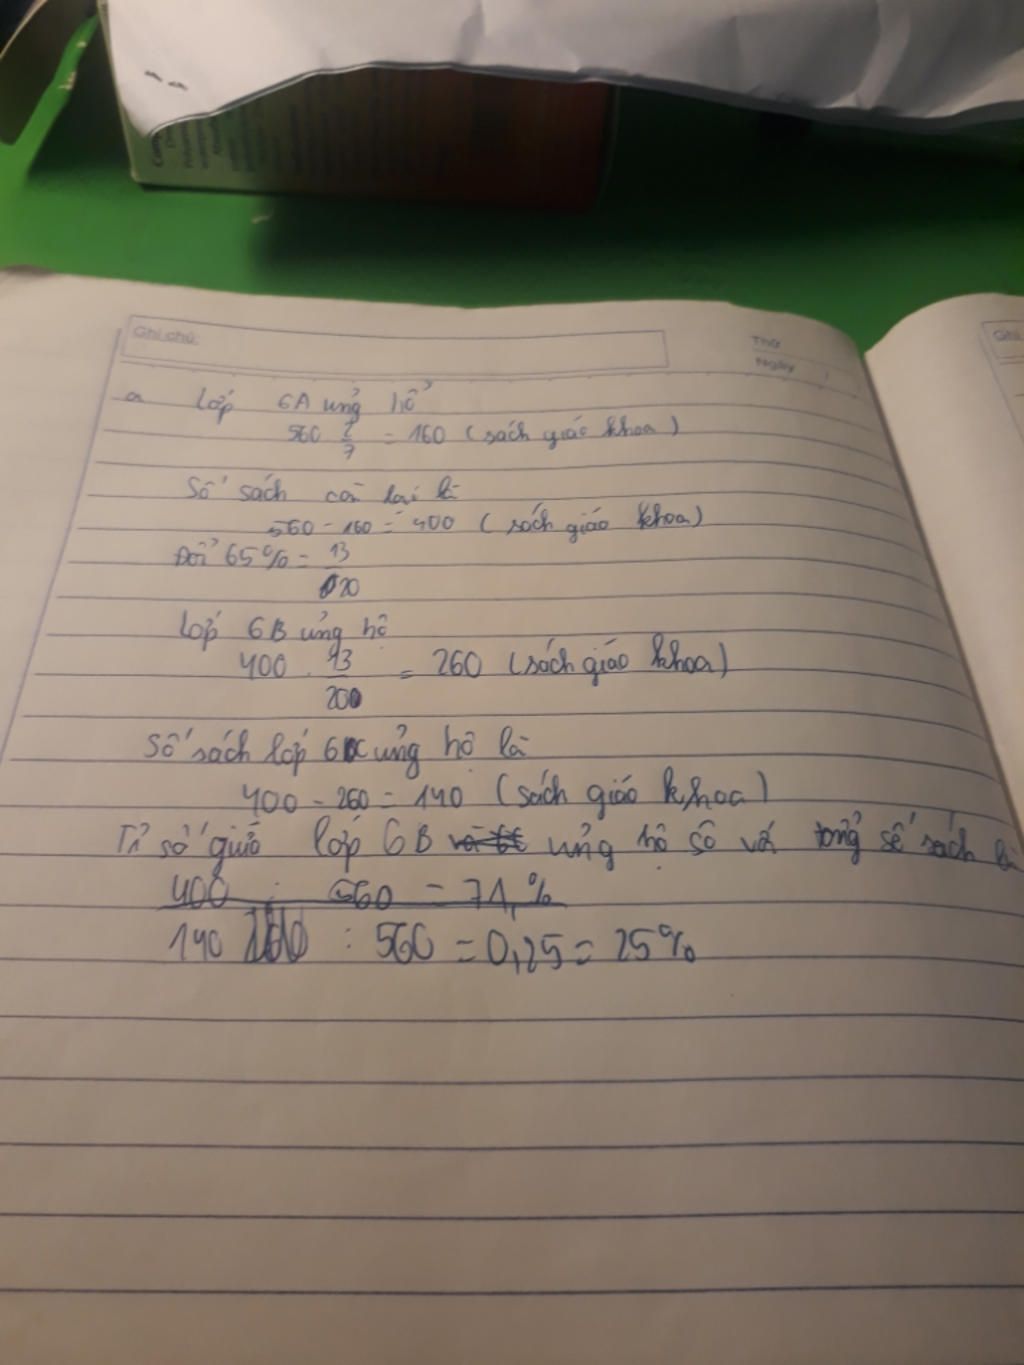 Ghi chú:
Thứ
Ngày /
Ghi
a Lớp 6A ủng hổ
560 2/7 = 160 (sách giáo khoa)
Số sách còn lại là
560 - 160 = 400 (sách giáo khoa)
Đổi 65% = 13/20
Lớp 6B ủng hộ
400 . 13/20 = 260 (sách giáo khoa)
Số sách lớp 6C ủng hô là
400 - 260 = 140 (sách giáo khoa)
Tỉ số giữa lớp 6B ủng hộ số với tổng số sách là
400 : 560 = 71,%
140 : 560 = 0,25 = 25%